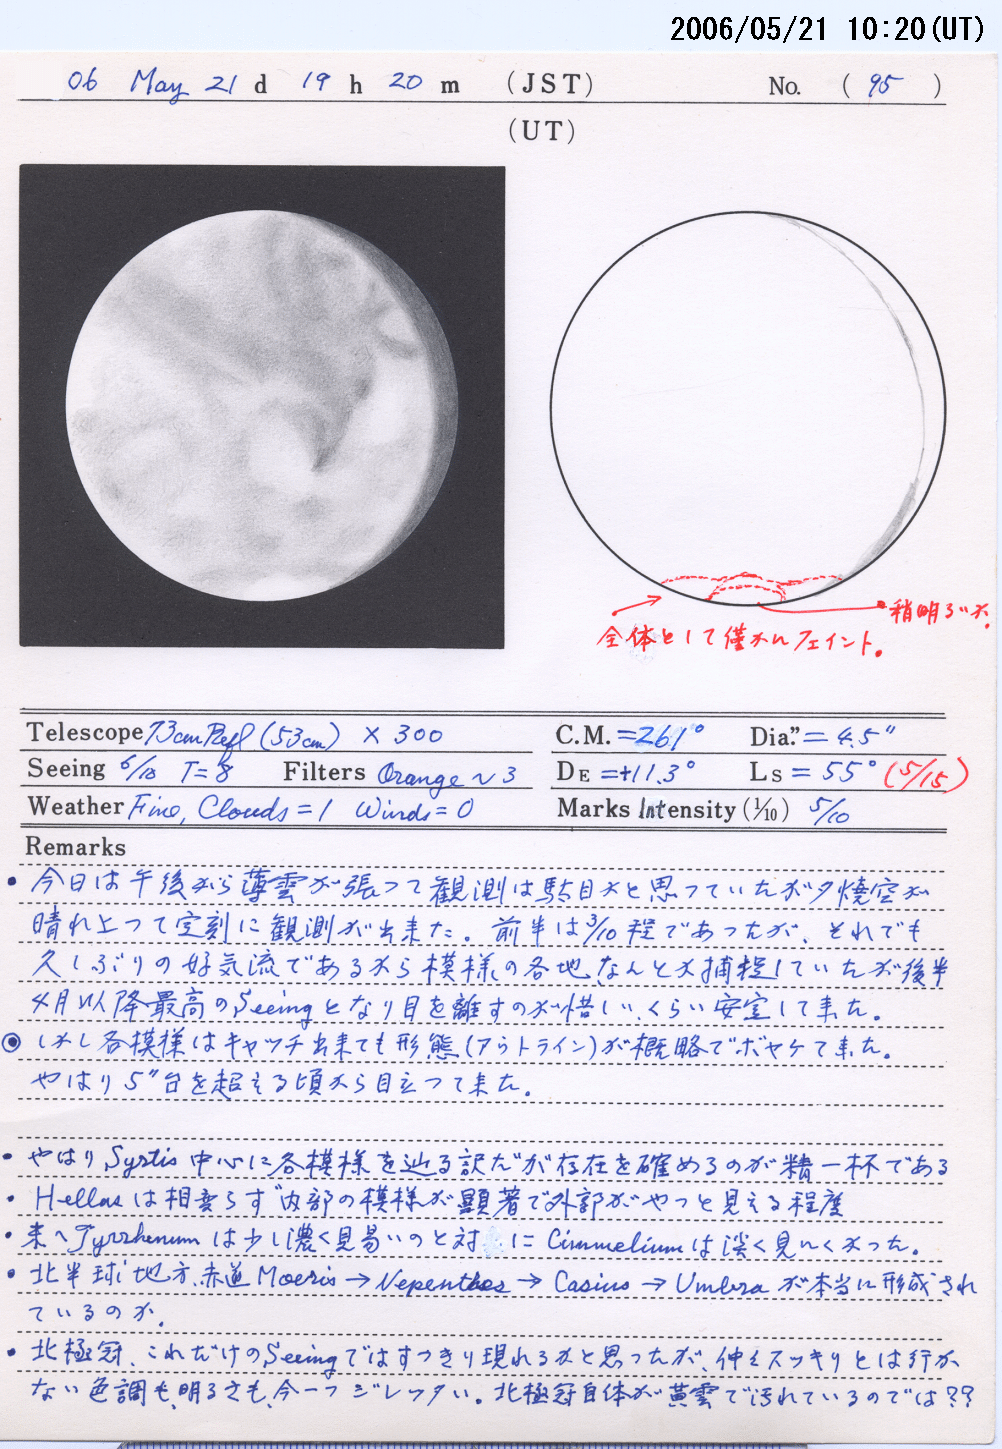 2006/05/21 10:20(UT)
06 May 21 d 19 h 20 m (JST) No. ( 95 )
(UT)
稍明るいか.
全体として僅かにフェイント.
Telescope 73cm Refl (53cm) × 300
C.M. = 261° Dia." = 4.5"
Seeing 6/10 T=8 Filters Orange ~ 3
DE = +11.3° Ls = 55° (5/15)
Weather Fine, Clouds = 1 Winds = 0
Marks Intensity (1/10) 5/10
Remarks
• 今日は午後から薄雲が張って観測は駄目かと思っていたが夕焼空が
晴れ上って定刻に観測が出来た. 前半は3/10程であったが、それでも
久しぶりの好気流であるから模様の各地なんとか捕捉していたが後半
4月以降最高のSeeingとなり目を離すのが惜しいくらい安定して来た.
◉ しかし各模様はキャッチ出来ても形態(アウトライン)が概略でボヤケて来た.
やはり5"台を超える頃から目立って来た.
• やはりSyrtis中心に各模様を辿る訳だが存在を確めるのが精一杯である
• Hellasは相変らず内部の模様が顕著で外部がやっと見える程度
• 東へTyrrhenumは少し濃く見易いのと対にCimmeliumは淡く見にくかった.
• 北半球地方、赤道Moeris→Nepenthes→Casius→Umbraが本当に形成され
ているのか.
• 北極冠、これだけのSeeingではすっきり現れるかと思ったが、仲々スッキリとは行か
ない色調も、明るさも、今一つジレッタい. 北極冠自体が黄雲で汚れているのでは??